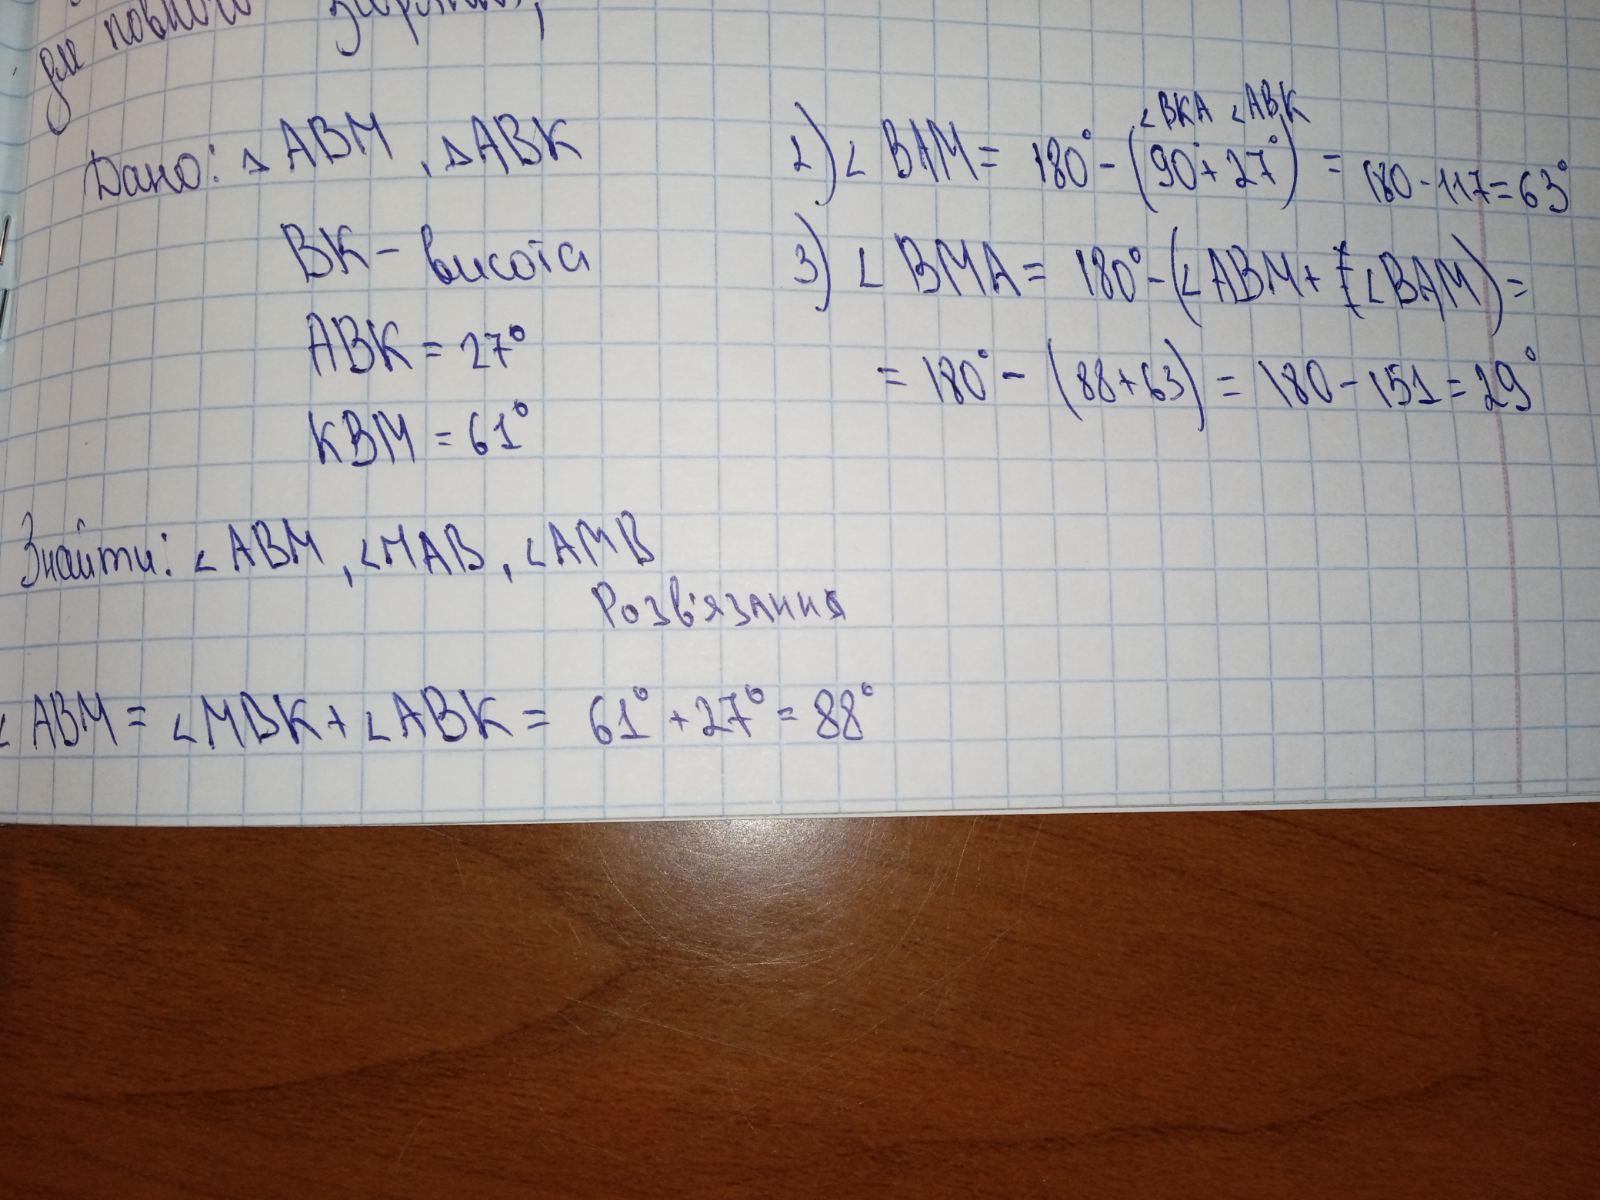 для повного
Дано: △ABM, △ABK
BK - висота
ABK = 27°
KBM = 61°
Знайти: ∠ABM, ∠MAB, ∠AMB
Розв'язання
∠ABM = ∠MBK + ∠ABK = 61° + 27° = 88°
∠BKA ∠ABK
2) ∠BAM = 180° - (90° + 27°) = 180 - 117 = 63°
3) ∠BMA = 180° - (∠ABM + ∠BAM) =
= 180° - (88 + 63) = 180 - 151 = 29°